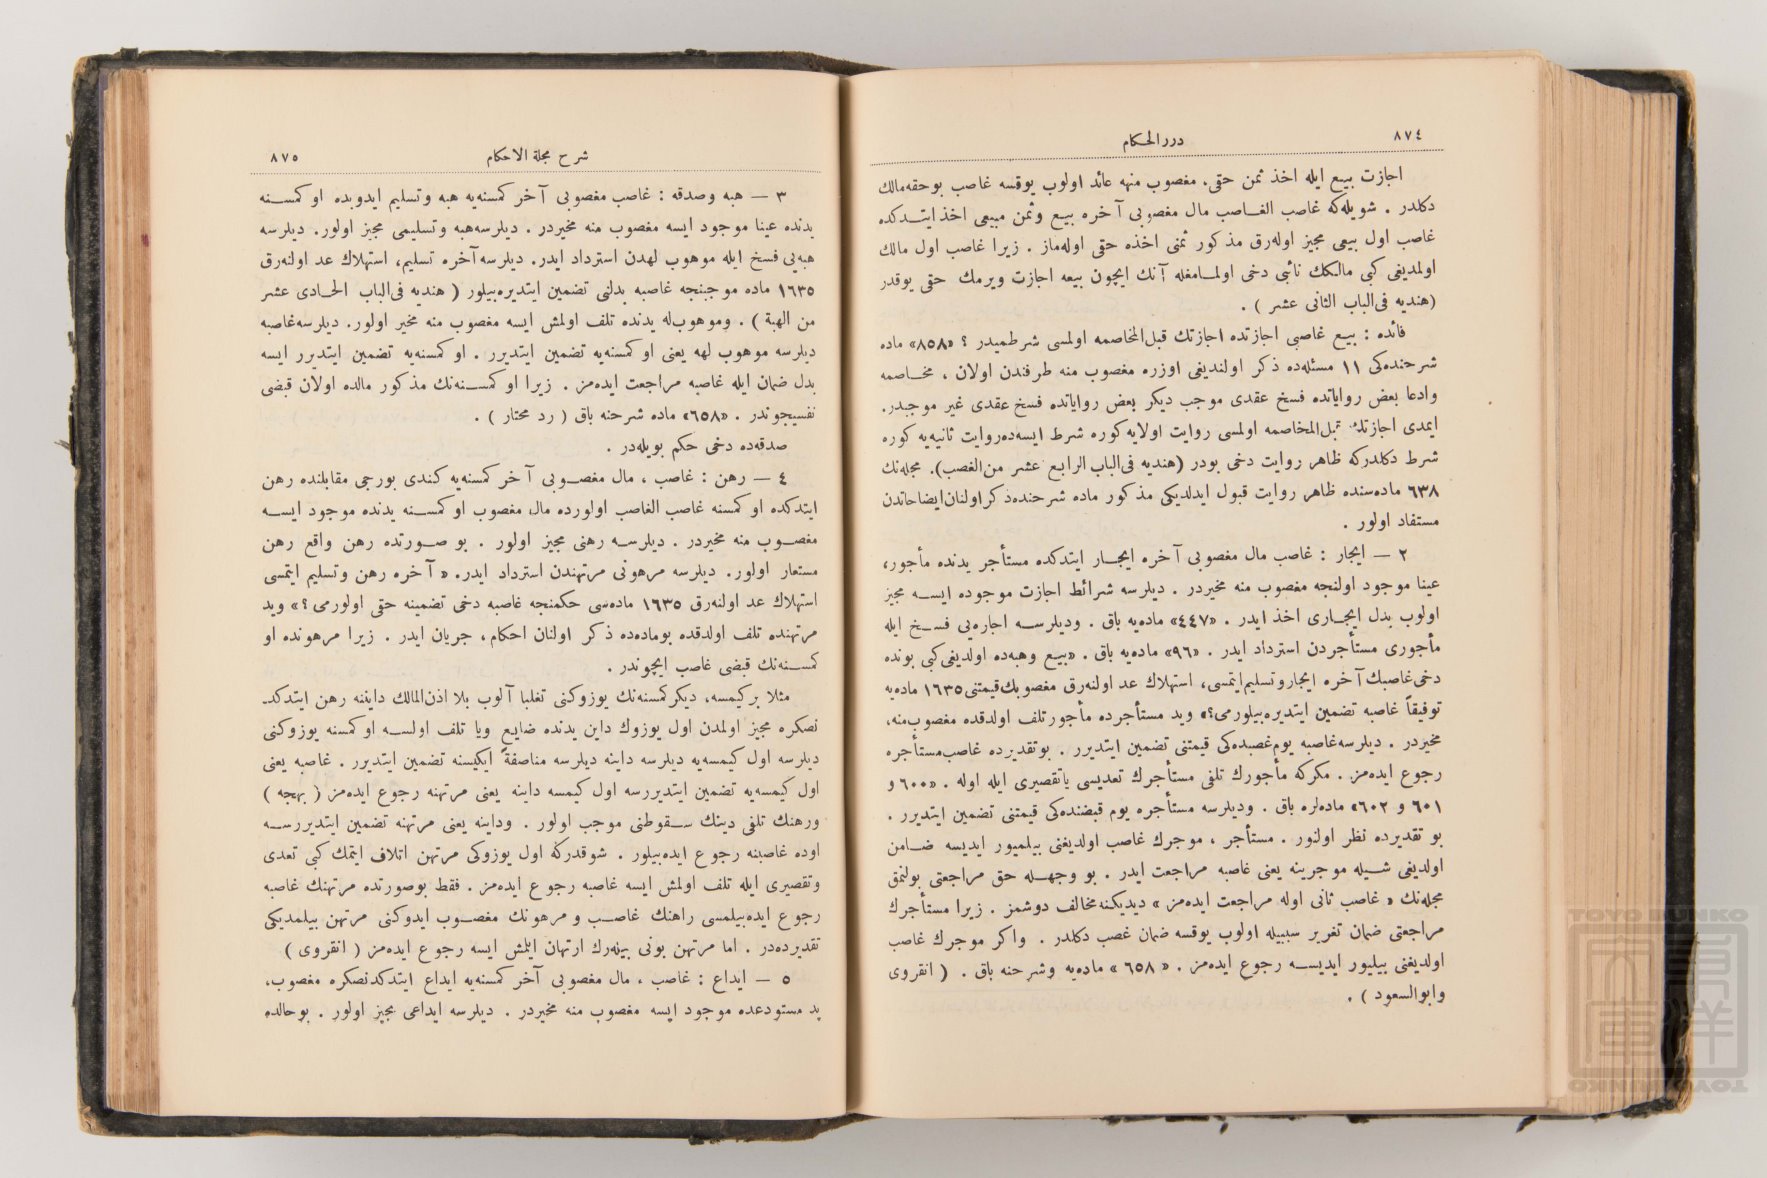 ٨٧٤
درر الحكام
اجازت بيع ايله اخذ ثمن حقى، مغصوب منهه عائد اولوب يوقسه غاصب بوحقه مالك
دكلدر . شويله‌كه غاصب الغاصب مال مغصوبى آخره بيع وثمن مبيعى اخذ ايتدكده
غاصب اول بيعى مجيز اوله‌رق مذكور ثمنى اخذه حقى اوله‌ماز . زيرا غاصب اول مالك
اولمديغى كبى مالكك نائبى دخى اولمامغله آنك ايچون بيعه اجازت ويرمك حقى يوقدر
(هنديه فى‌الباب الثانى عشر ) .
فائده : بيع غاصبى اجازتده اجازتك قبل‌المخاصمه اولمسى شرطميدر ؟ «٨٥٨» ماده
شرحنده‌كى ١١ مسئله‌ده ذكر اولنديغى اوزره مغصوب منه طرفندن اولان ، مخاصمه
وادعا بعض رواياتده فسخ عقدى موجب ديكر بعض رواياتده فسخ عقدى غير موجبدر.
ايمدى اجازتك قبل‌المخاصمه اولمسى روايت اولايه‌كوره شرط ايسه‌ده روايت ثانيه‌يه كوره
شرط دكلدركه ظاهر روايت دخى بودر (هنديه فى‌الباب الرابع عشر من‌الغصب). مجله‌نك
٦٣٨ ماده‌سنده ظاهر روايت قبول ايدلديكى مذكور ماده شرحنده‌ذكر اولنان‌ايضاحاتدن
مستفاد اولور .
٢ — ايجار : غاصب مال مغصوبى آخره ايجار ايتدكده مستأجر يدنده مأجور،
عينا موجود اولنجه مغصوب منه مخيردر . ديلرسه شرائط اجازت موجوده ايسه مجيز
اولوب بدل ايجارى اخذ ايدر . «٤٤٧» ماده‌يه باق . وديلرسه اجاره‌يى فسخ ايله
مأجورى مستأجردن استرداد ايدر . «٩٦» ماده‌يه باق . «بيع وهبه‌ده اولديغى كبى بونده
دخى غاصبك آخره ايجار وتسليم ايتمسى، استهلاك عد اولنه‌رق مغصوبك قيمتنى ١٦٣٥ ماده‌يه
توفيقاً غاصبه تضمين ايتديره‌بيلورمى؟» ويد مستأجرده مأجور تلف اولدقده مغصوب‌منه،
مخيردر . ديلرسه غاصبه يوم غصبده‌كى قيمتنى تضمين ايتديرر . بو تقديرده غاصب‌مستأجره
رجوع ايده‌مز . مكركه مأجورك تلفى مستأجرك تعديسى ياتقصيرى ايله اوله . «٦٠٠ و
٦٠١ و ٦٠٢» ماده‌لره باق . وديلرسه مستأجره يوم قبضنده‌كى قيمتنى تضمين ايتديرر .
بو تقديرده نظر اولنور . مستأجر ، موجرك غاصب اولديغنى بيلميور ايديسه ضامن
اولديغى شيله موجرينه يعنى غاصبه مراجعت ايدر . بو وجهله حق مراجعتى بولنمق
مجله‌نك « غاصب ثانى اوله مراجعت ايده‌مز » ديديكنه مخالف دوشمز . زيرا مستأجرك
مراجعتى ضمان تغرير سببيله اولوب يوقسه ضمان غصب دكلدر . واكر موجرك غاصب
اولديغنى بيليور ايديسه رجوع ايده‌مز . « ٦٥٨ » ماده‌يه وشرحنه باق . ( انقروى
وابوالسعود ) .
شرح مجلة الاحكام
٨٧٥
٣ — هبه وصدقه : غاصب مغصوبى آخر كمسنه‌يه هبه وتسليم ايدوبده او كمسنه
يدنده عينا موجود ايسه مغصوب منه مخيردر . ديلرسه‌هبه وتسليمى مجيز اولور. ديلرسه
هبه‌يى فسخ ايله موهوب لهدن استرداد ايدر. ديلرسه آخره تسليم، استهلاك عد اولنه‌رق
١٦٣٥ ماده موجبنجه غاصبه بدلنى تضمين ايتديره‌بيلور ( هنديه فى‌الباب الحادى عشر
من الهبة ) . وموهوب‌له يدنده تلف اولمش ايسه مغصوب منه مخير اولور. ديلرسه‌غاصبه
ديلرسه موهوب لهه يعنى او كمسنه‌يه تضمين ايتديرر . او كمسنه‌يه تضمين ايتديرر ايسه
بدل ضمان ايله غاصبه مراجعت ايده‌مز . زيرا او كمسنه‌نك مذكور مالده اولان قبضى
نفسيچوندر . «٦٥٨» ماده شرحنه باق ( رد محتار ) .
صدقه‌ده دخى حكم بويله‌در .
٤ — رهن : غاصب ، مال مغصوبى آخر كمسنه‌يه كندى بورجى مقابلنده رهن
ايتدكده او كمسنه غاصب الغاصب اولورده مال مغصوب او كمسنه يدنده موجود ايسه
مغصوب منه مخيردر . ديلرسه رهنى مجيز اولور . بو صورتده رهن واقع رهن
مستعار اولور. ديلرسه مرهونى مرتهندن استرداد ايدر. « آخره رهن وتسليم ايتمسى
استهلاك عد اولنه‌رق ١٦٣٥ ماده‌سى حكمنجه غاصبه دخى تضمينه حقى اولورمى ؟» ويد
مرتهنده تلف اولدقده بوماده‌ده ذكر اولنان احكام، جريان ايدر . زيرا مرهونده او
كمسنه‌نك قبضى غاصب ايچوندر .
مثلا بركيمسه، ديكر كمسنه‌نك يوزوكنى تغلبا آلوب بلا اذن‌المالك داينه رهن ايتدكد‌ـ
نصكره مجيز اولمدن اول يوزوك داين يدنده ضايع ويا تلف اولسه او كمسنه يوزوكنى
ديلرسه اول كيمسه‌يه ديلرسه داينه ديلرسه مناصفةً ايكيسنه تضمين ايتديرر . غاصبه يعنى
اول كيمسه‌يه تضمين ايتديررسه اول كيمسه داينه يعنى مرتهنه رجوع ايده‌مز ( بهجه )
ورهنك تلفى دينك سقوطنى موجب اولور . وداينه يعنى مرتهنه تضمين ايتديررسه
اوده غاصبنه رجوع ايده‌بيلور . شوقدركه اول يوزوكى مرتهن اتلاف ايتمك كبى تعدى
وتقصيرى ايله تلف اولمش ايسه غاصبه رجوع ايده‌مز . فقط بوصورتده مرتهنك غاصبه
رجوع ايده‌بيلمسى راهنك غاصب و مرهونك مغصوب ايدوكنى مرتهن بيلمديكى
تقديرده‌در . اما مرتهن بونى بيله‌رك ارتهان ايلمش ايسه رجوع ايده‌مز ( انقروى )
٥ — ايداع : غاصب ، مال مغصوبى آخر كمسنه‌يه ايداع ايتدكدنصكره مغصوب،
يد مستودعده موجود ايسه مغصوب منه مخيردر . ديلرسه ايداعى مجيز اولور . بوحالده
TOYO BUNKO